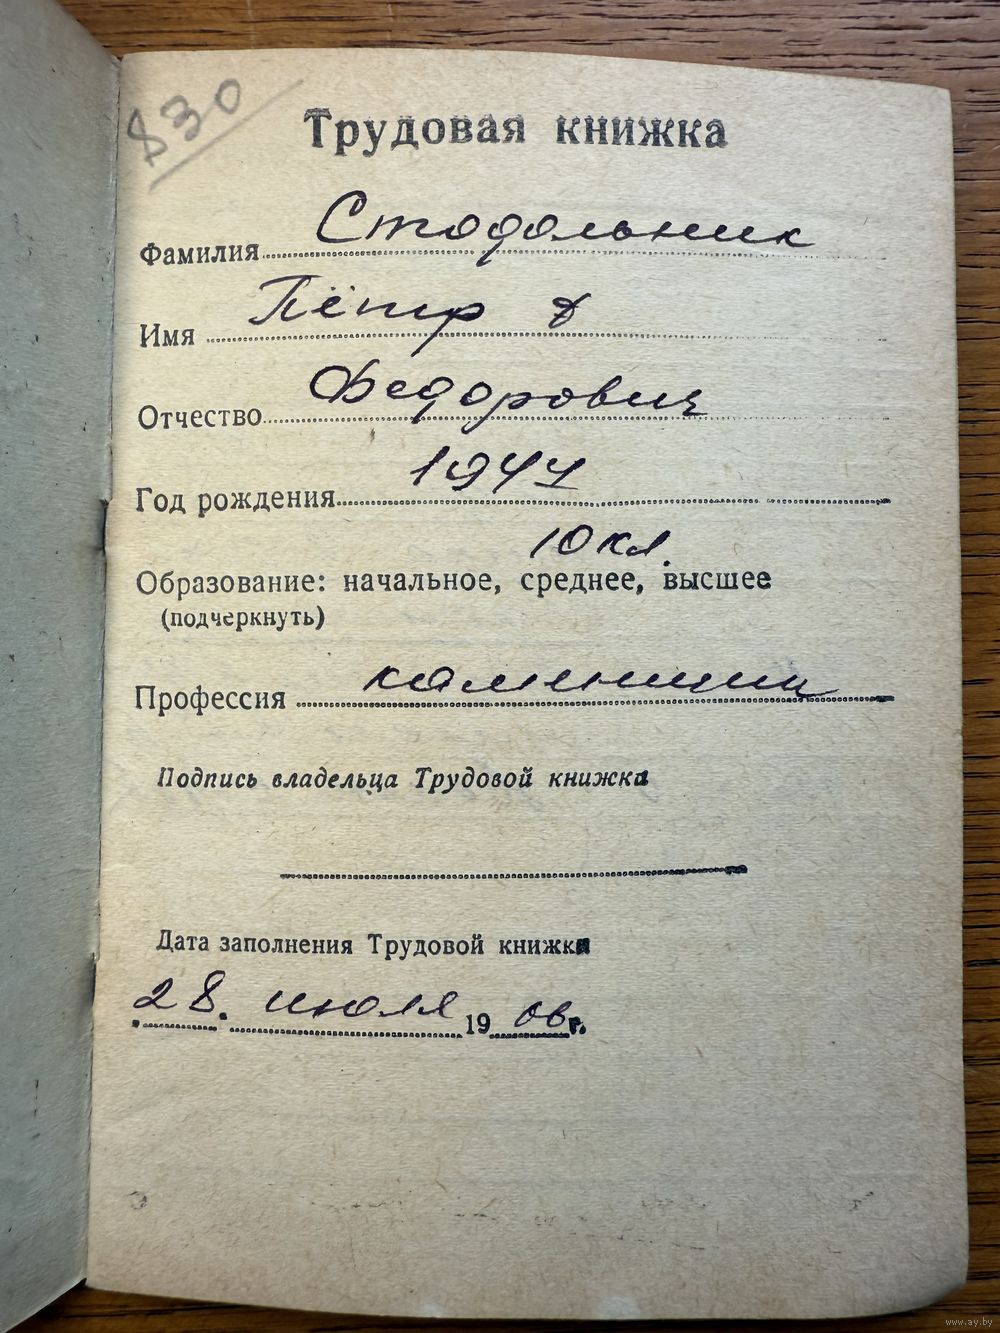 830
Трудовая книжка
Фамилия Стодольник
Имя Пётр
Отчество Федорович
Год рождения 1944
10 кл.
Образование: начальное, среднее, высшее
(подчеркнуть)
Профессия каменщик
Подпись владельца Трудовой книжки
Дата заполнения Трудовой книжки
28. июля 19 г.
www.ay.by